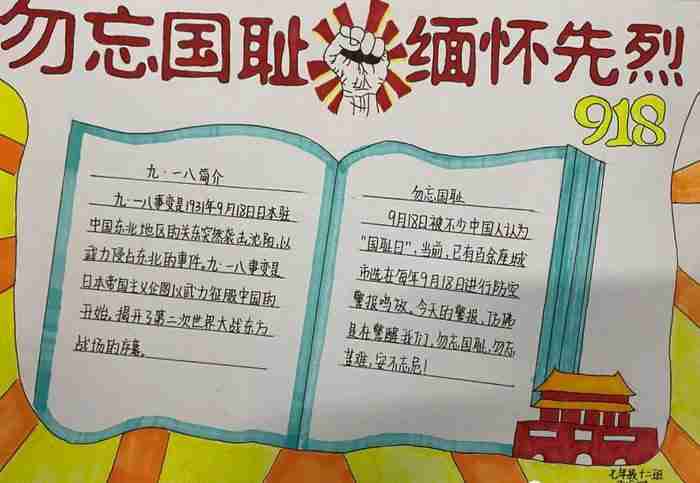 勿忘国耻 缅怀先烈
918
九·一八简介
九·一八事变是1931年9月18日日本驻
中国东北地区的关东突然袭击沈阳,以
武力侵占东北的事件。九·一八事变是
日本帝国主义企图以武力征服中国的
开始,揭开了第二次世界大战东方
战场的序幕。
勿忘国耻
9月18日被不少中国人认为
"国耻日",当前,已有百余座城
市选在每年9月18日进行防空
警报鸣放。今天的警报,仿佛
是在警醒我们,勿忘国耻,勿忘
苦难,安不忘危!
七年级十二班